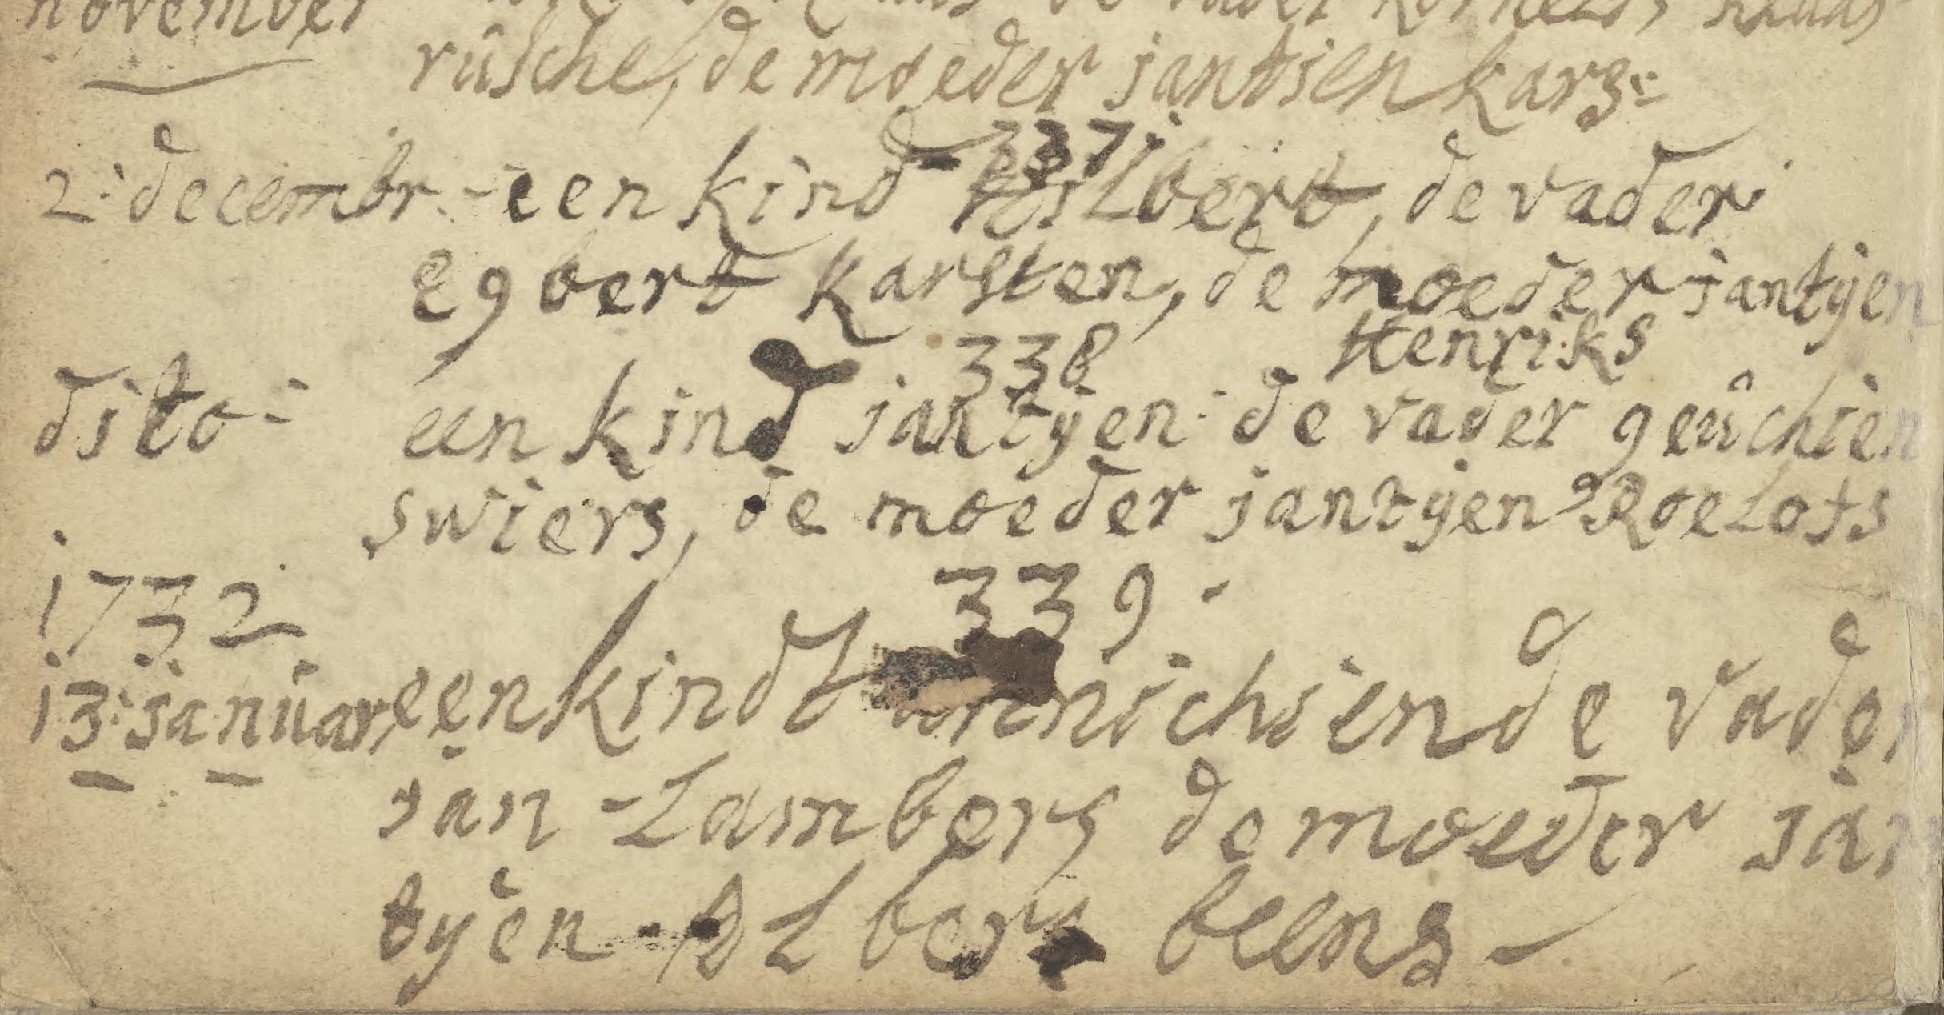 november
rûsche, de moeder jantien kars:
337
2: decembr - een kind hilbert, de vader
Egbert Karsten, de moeder jantyen
Henriks
338
dito: een kind jantyen: de vader geûchien
swiers, de moeder jantyen Roelofs
1732
339
13: janûar een kindt annichien de vader
jan Lambers de moeder jan
tyen Albers beens